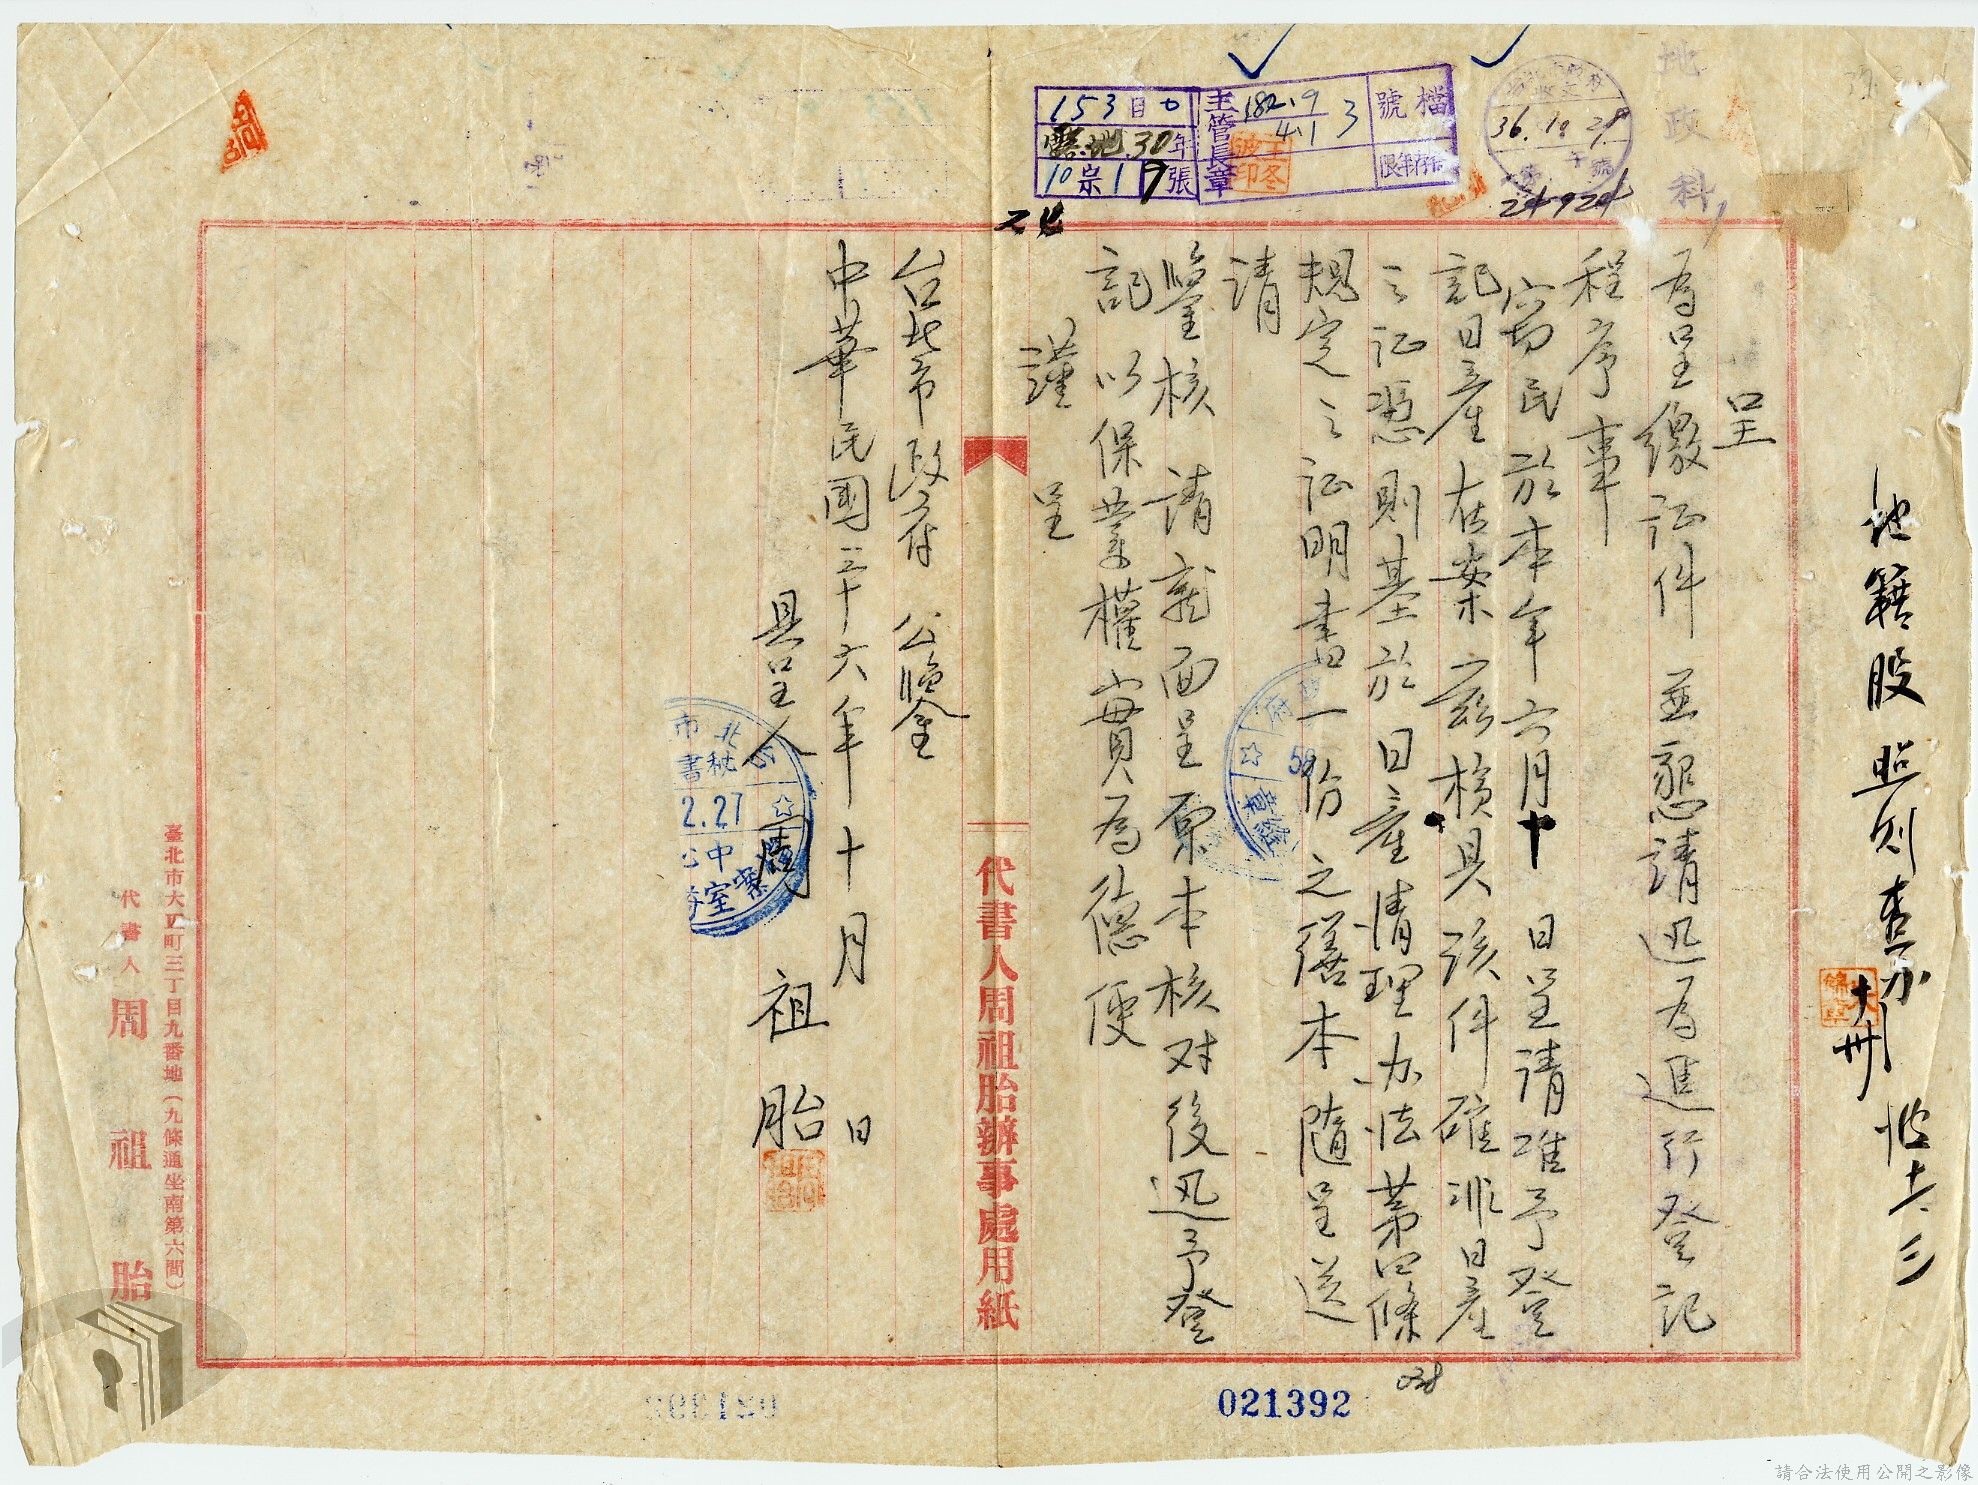 地政科
36.10.29
24924
檔號
182.9
4.1
3
主管長章
153目0
地.30年
10宗19張
地籍股照則查办
十卅
十一、三
呈
為呈繳证件並懇請迅為進行登记
程序事
竊民於本年六月十日呈請准予登
記日產在案茲檢具該件確非日產
之证憑則基於日產清理办法第四條
規定之证明書一份之繕本隨呈送
請
鑒核請就面呈原本核对後迅予登
記以保業權實為德便
謹呈
台北市政府公鑒
中華民國三十六年十月日
具呈人周祖胎
市北
書秘
2.27
代書人周祖胎辦事處用紙
臺北市大正町三丁目九番地(九條通坐南第六間)
代書人周祖胎
021392
請合法使用公開之影像